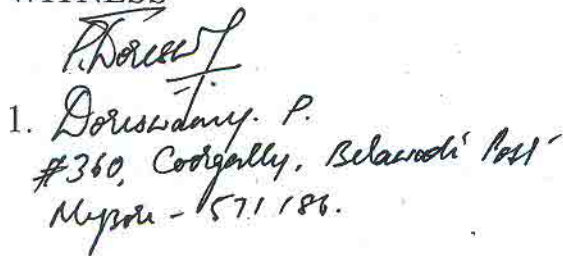 WITNESS
P. Doresw
1. Doreswamy. P.
#360, Coorgally, Belawadi Post
Mysore - 571186.